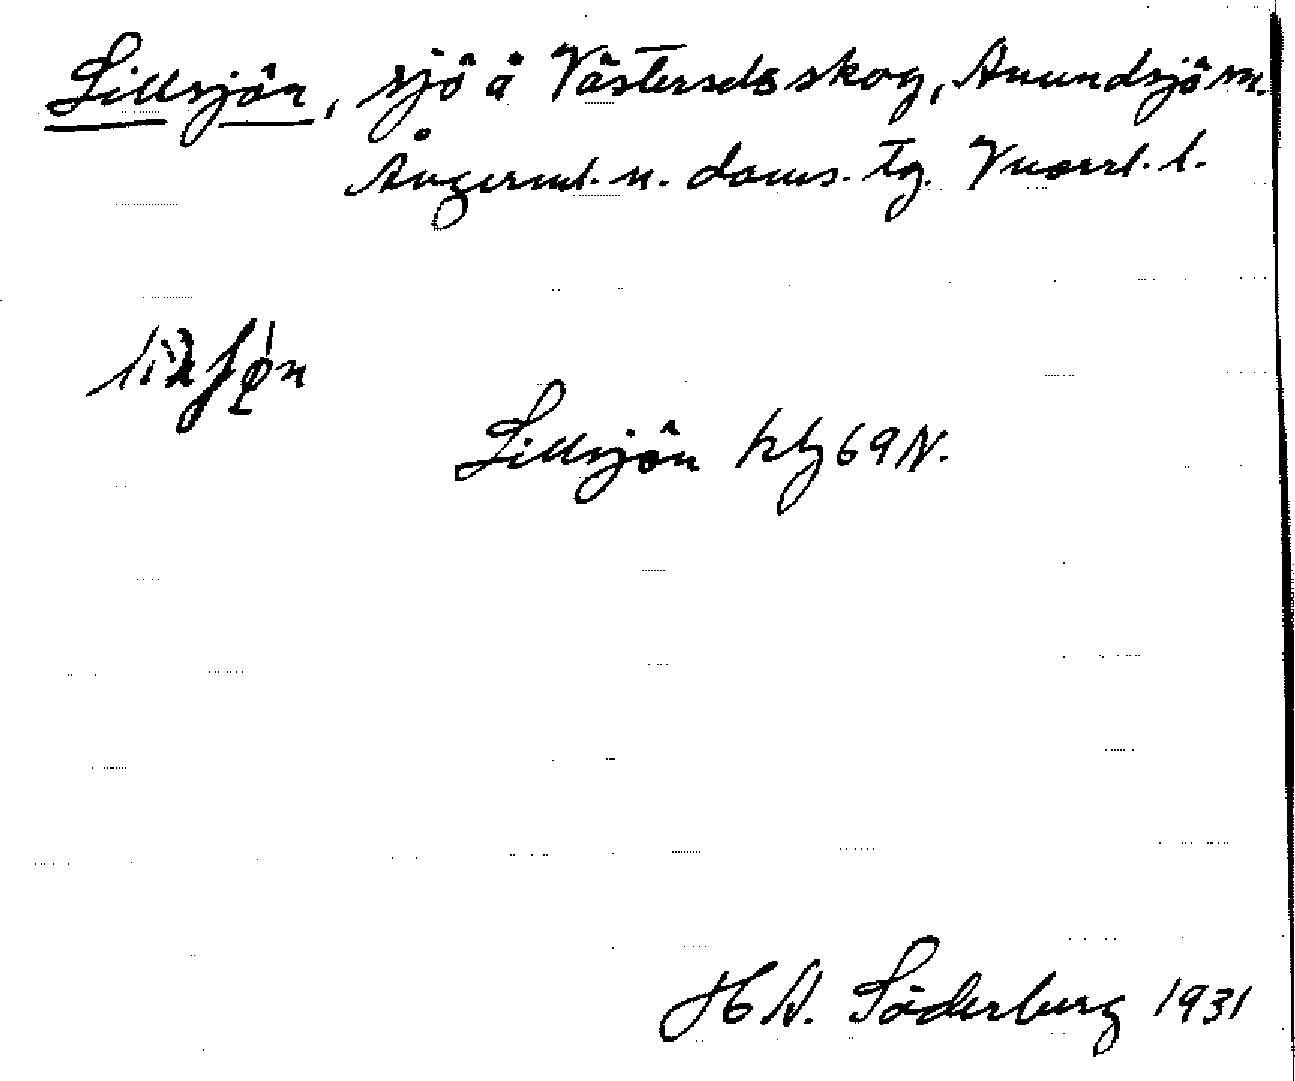 Lillsjön, sjö å Västersels skog, Anundsjö sn.
Ångerml. n. doms. tg. Vnorrl. l.
Lillsjön hbl 69 N.
H A. Söderberg 1931